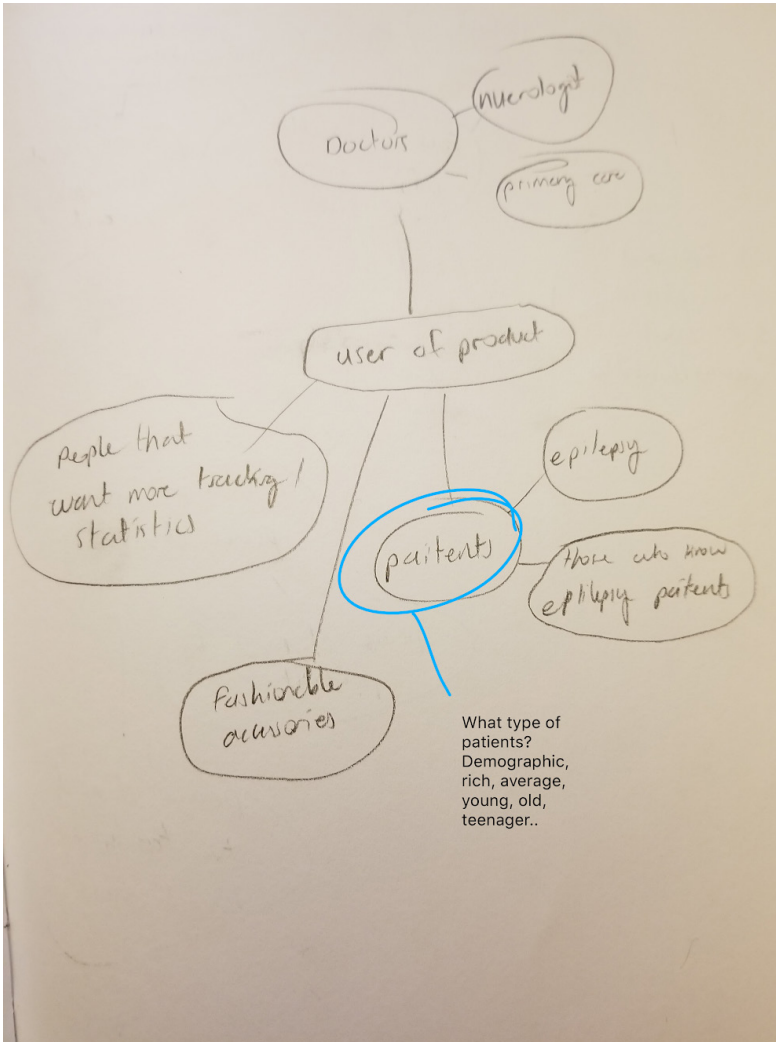 nuerologist
Doctors
primary care
user of product
people that
want more tracking /
statistics
epilepsy
paitents
those who know
epilepsy paitents
Fashionable
accussories
What type of
patients?
Demographic,
rich, average,
young, old,
teenager..